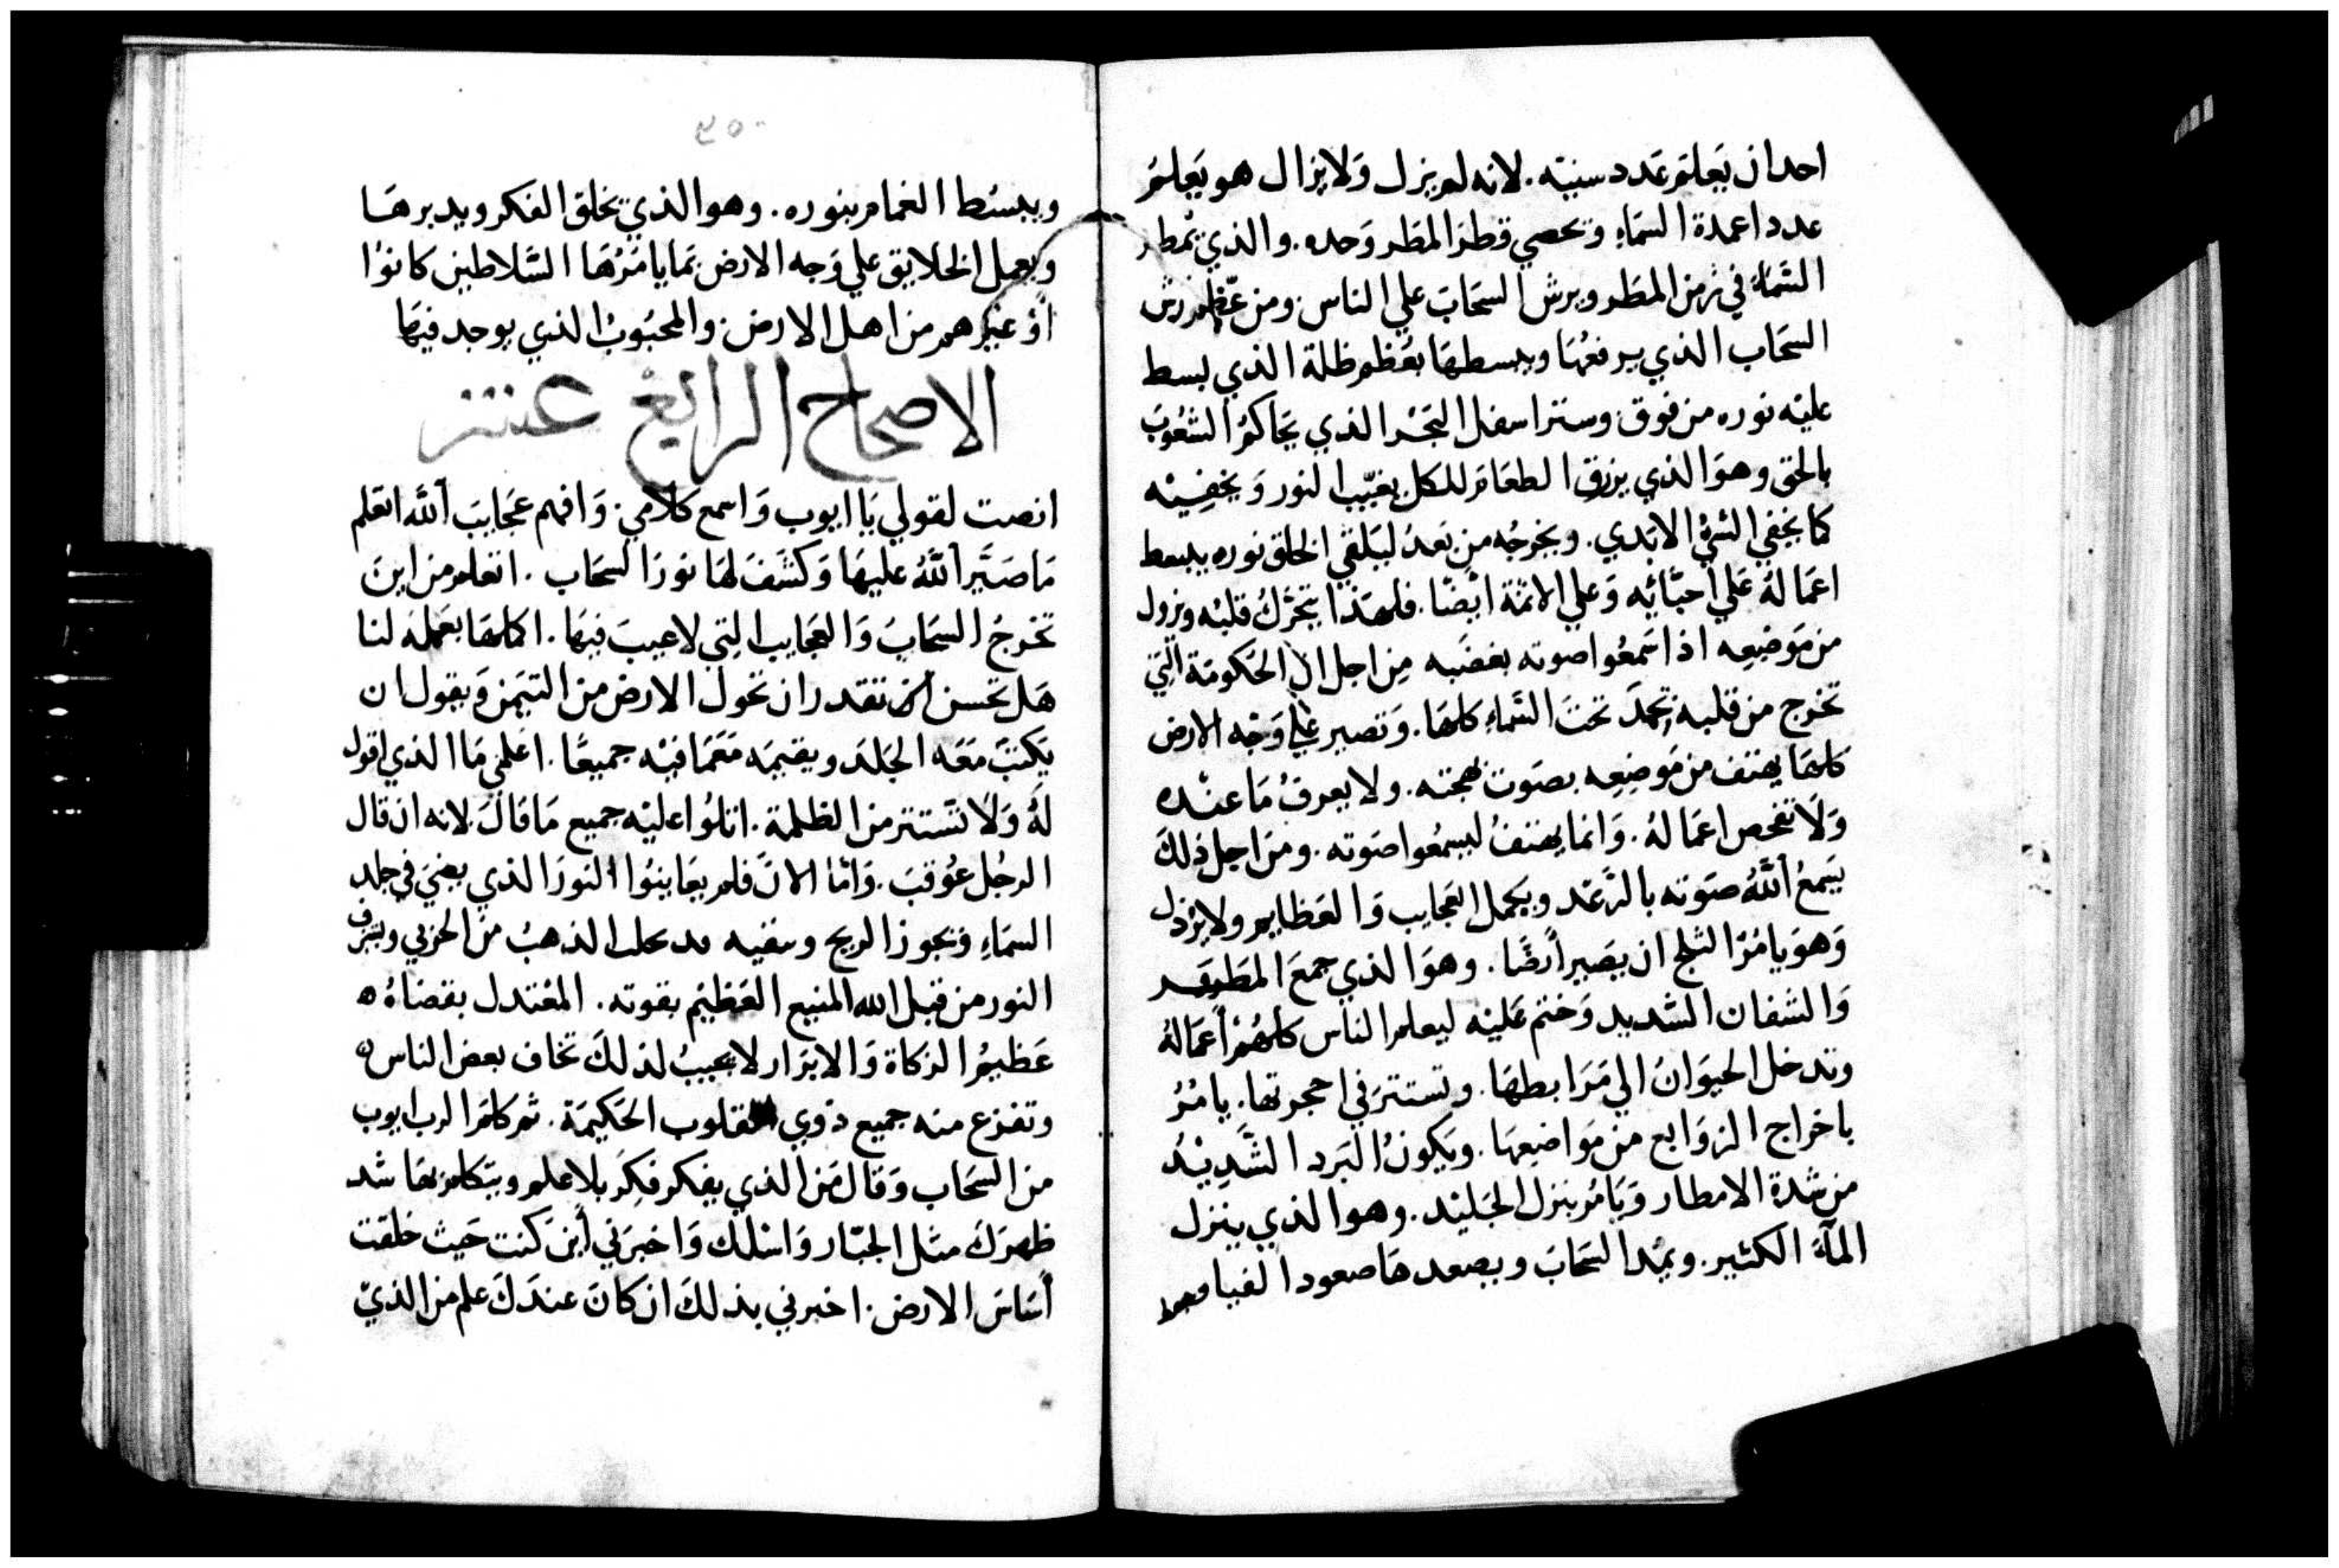 احد ان يَعلَم عَدد سنيّه. لانه لم يزل وَلا يزال هو يَعلمُ
عدد اعمدة السَماءِ وتحصي قطرَ المطَر وَحده. والذي يُمطر
السَّمَاءُ في زمن المطَر ويرش السَحَاب علي الناس. ومن عظم رش
السَحَاب الذي يرفعُهَا ويبسطهَا بعُظم ظلة الذي بسط
عليْه نوره من فوق. وستر اسفل البَحْر الذي يحَاكمُ الشعُوبَ
بالحق وهوَ الذي يرزق الطعَام للكل يغيّب النور وَيخفِيْه
كما يخفي الشيْ الابَدي. ويخرجُه من بَعدُ ليَلقي الخلق نوره يبسط
اعمَالهُ عَلي احبَّائه وَعلي الاثمَة ايْضًا. فلهَذا يتحَرّكُ قلبْه ويزول
من مَوضِعِه اذا سَمعُوا صوته بغضَبه مِن اجل ان الحكومَة التي
تخرج من قلبه تحمدَ تحتَ السَّماء كلهَا. وَتصير علي وَجْه الارض
كلهَا يهتف من مَوضِعِه بصَوت بهجته. ولا يعرفُ مَا عنْده
وَلَا تفحص اعمَالهُ. وَانما يهتفُ ليسمعُوا صَوته. ومن اجل ذلكَ
يَسمعُ اللّهُ صَوته بالرَّعْد ويَكمل العَجَايب وَالعَظايم ولا يزل
وَهوَ يامُرُ الثلج ان يصَير أرضًا. وهوَ الذي جمعَ المطَر
وَالشفان الشديد وَختم عَليْه ليعلم الناس كلهُم أعمَالهُ
وتدخل الحيوَانُ الي مَرَابطهَا. وتستترَ في احجرتها. يامُرُ
باخراج الزوَابع من مَوَاضعِهَا. ويَكونُ البَرد الشَدِيْدُ
من شدة الامطار وَيَامُر بنزل الجَليْد. وهوا لذي ينزل
المآءَ الكثير. ويمُد السَحَابَ ويصعدهَا صعود الغيام
٢٥٠
ويبسُط الغمام بنوره. وهوا لذي يخلق الفكر ويدبرهَا
ويعمل الخلايق علي وَجه الارض بمَا يامُرُهَا السَّلاطين كانوُا
اوْ غيرهم من اهل الارض. والمحبُوبُ الذي يوجد فيهَا
الاصحاح الرابع عشر
انصت لقولي يَا ايوب وَاسمع كلامي. وَافهم عجَايبَ اللّه اتعَلم
مَا صَيَّر اللّهُ عليهَا وَكشَفَ لهَا نورَ السَحَاب. اتعلم من اينَ
تخرجُ السَحَابُ وَالعَجَايب التي لا عيبَ فيهَا. اكلهَا بعَملهَ لنا
هَل تحسن ان تقدر ان تحول الارض من التيَمن وَيقول ان
يَكتبَ مَعَه الجَلدَ ويقيمَه مَعَمَا فيْه جميعًا. اعْلمني مَا الذي اقول
لهُ وَلَا نَستتر من الظلمة. اتلوُا عليْه جميع مَا قالَ. لانه ان قال
الرجُل عوُقبَ. وَامَّا الانَ فلم يعَاينوُا النورَ الذي يضي في جلد
السمَاءِ وتجوز الريح وسفيه الذهبُ من الحزبي ويشرق
النور من قبل الله المنيع العَظيم بقوته. المعْتدل بقضاهُ ه
عَظيمُ الزكاة وَالابرَار لا يجيبُ لذلكَ تخاف بعض الناس ه
وتفزع منه جميع ذوي القلوب الحَكيمَة. ثم كلمَ الرب ايوب
من السَحَاب وَقالَ مَن الذي يفكر فكِر بلا علم ويتكلم بهَا شد
ظهرَكَ مثل الجبّار وَاسْالك وَاخبَرني أين كنت حَيث خلقت
أسَاسَ الارض. اخبرني بذلكَ ان كانَ عندَكَ علم من الذيْ